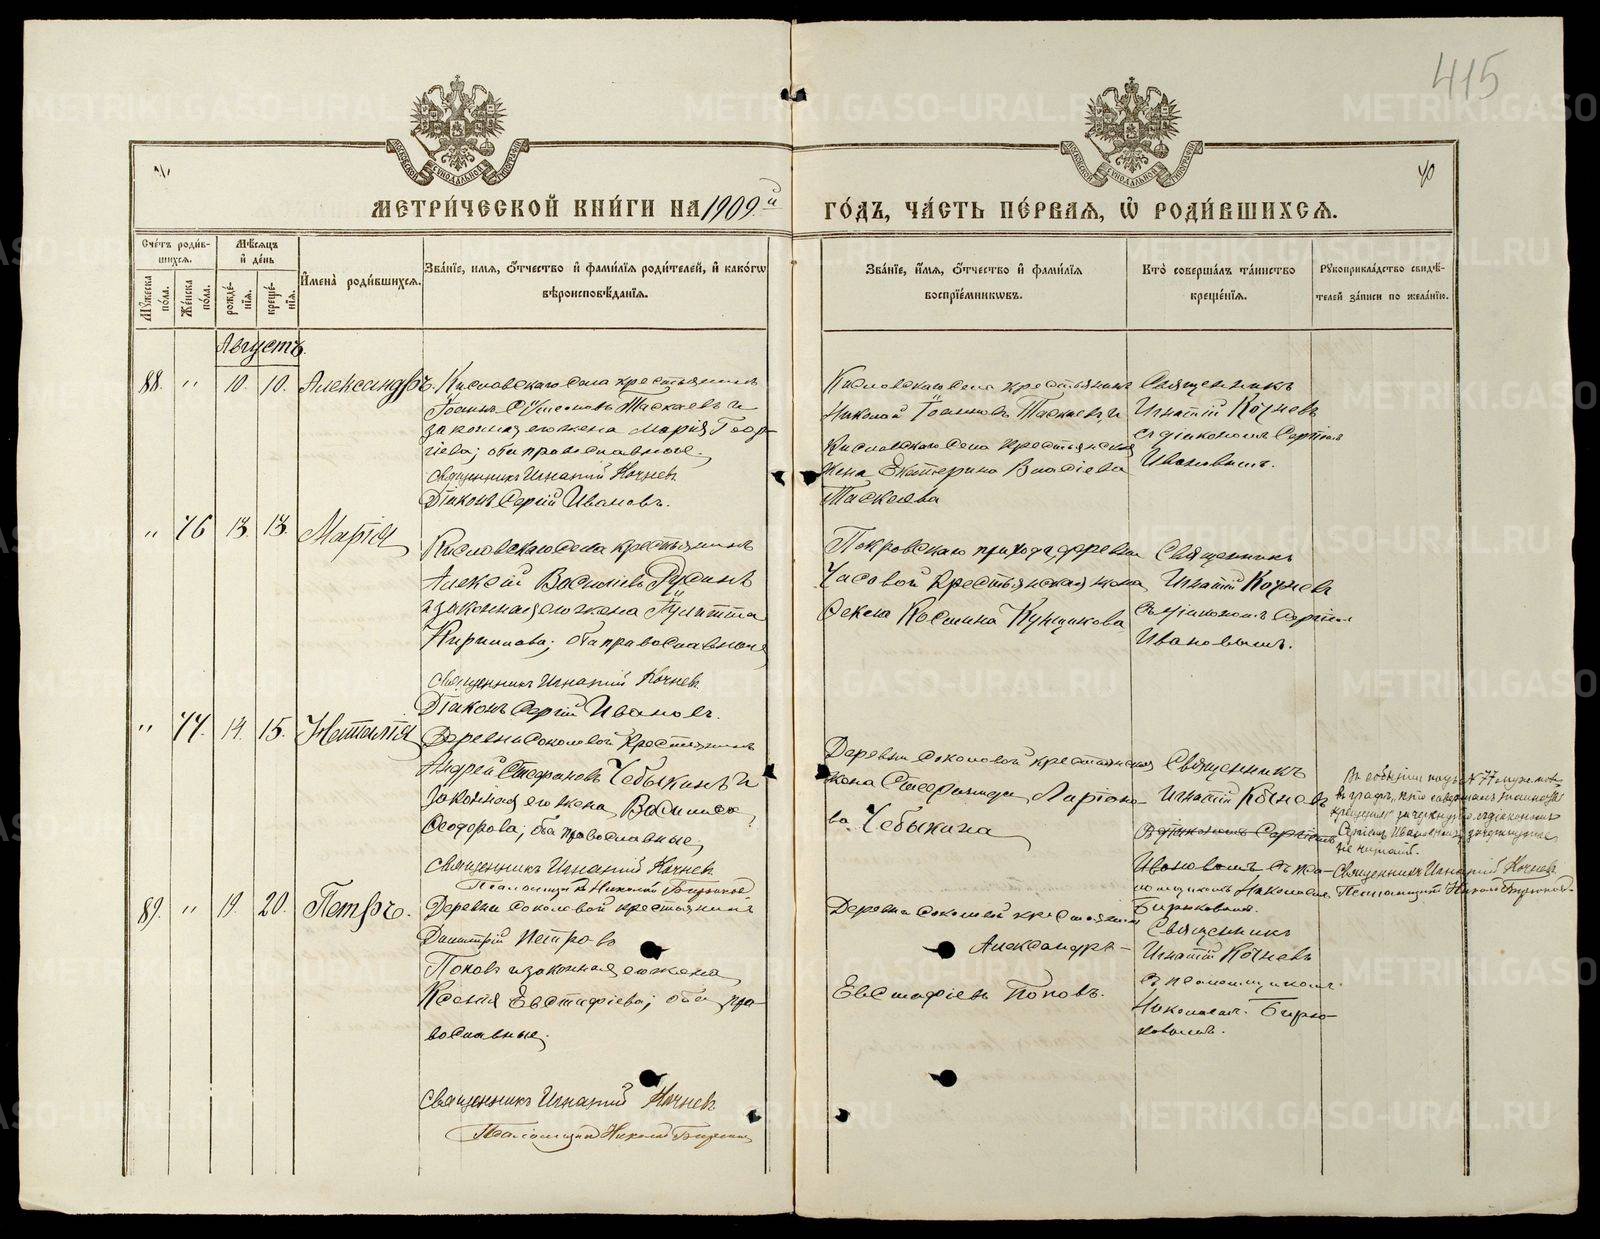 415
МЕТРИ́ЧЕСКОЙ КНИ́ГИ НА 1909й
ГО́ДЪ, ЧА́СТЬ ПЕ́РВАЯ, Ѽ РОДИ́ВШИХСЯ.
40
Сче́тъ роди́вшихся.
Мѣ́сяцъ и де́нь
Му́жеска по́ла.
Же́нска по́ла.
рожде́нїя.
креще́нїя.
И҆мена̀ роди́вшихся.
Зва́нїе, и҆мя, о҆́тчество и҆ фами́лїя роди́телей, и҆ како́гѡ
вѣроисповѣ́данїя.
Зва́нїе, и҆́мя, о҆́тчество и҆ фами́лїя
воспрїе́мникѡвъ.
Кто̀ соверша́лъ та́инство
креще́нїя.
Рꙋкоприкла́дство свидѣ́телей за́писи по жела́нїю.
Августъ.
88. " 10. 10. Александръ.
Кисловскаго села крестьянинъ
Іоаннъ Таскаевъ и
законная его жена Марія Георгіева; оба православные.
Священникъ Игнатій Кочневъ
Діаконъ Сергій Ивановъ.
Кисловскаго села крестьянинъ
Николай Іоанновъ Таскаевъ и
Кисловскаго села крестьянская
жена Екатерина Власіева
Таскаева
Священникъ
Игнатій Кочневъ
съ діакономъ Сергіемъ
Ивановымъ.
" 76 13. 13. Марія
Кисловскаго села крестьянинъ
Алексій Васильевъ Русинъ
и законная его жена Іулитта
Кириллова; оба православные
Священникъ Игнатій Кочневъ
Діаконъ Сергій Ивановъ.
Покровскаго прихода, деревни
Часовой крестьянская жена
Ксенія Космина Кунщикова
Священникъ
Игнатій Кочневъ
съ діакономъ Сергіемъ
Ивановымъ.
" 77. 14. 15. Наталія
Деревни Соколовой крестьянинъ
Андрей Стефановъ Чебыкинъ и
законная его жена Васса
Ѳеодорова; оба православные
Священникъ Игнатій Кочневъ
Псаломщикъ Николай Бирюковъ
Деревни Соколовой крестьянская
жена Стефанида Ларіонова Чебыкина
Священникъ
Игнатій Кочневъ
съ діакономъ Сергіемъ
Ивановымъ съ псаломщикомъ Николаемъ
Бирюковымъ.
Въ событіи подъ № 77 муж. пол.
въ графѣ "кто совершалъ таинство
крещенія" зачеркнуто: съ діакономъ
Сергіемъ Ивановымъ, зачеркнутое
не читать.
Священникъ Игнатій Кочневъ
Псаломщикъ Николай Бирюковъ
89. " 19. 20. Петръ.
Деревни Соколовой крестьянинъ
Димитрій Петровъ
Поповъ и законная его жена
Ксенія Евстафіева; оба православные.
Священникъ Игнатій Кочневъ
Псаломщикъ Николай Бирюковъ
Деревни Соколовой крестьянинъ
Александръ
Евстафіевъ Поповъ.
Священникъ
Игнатій Кочневъ
съ псаломщикомъ
Николаемъ Бирюковымъ.
METRIKI.GASO-URAL.RU